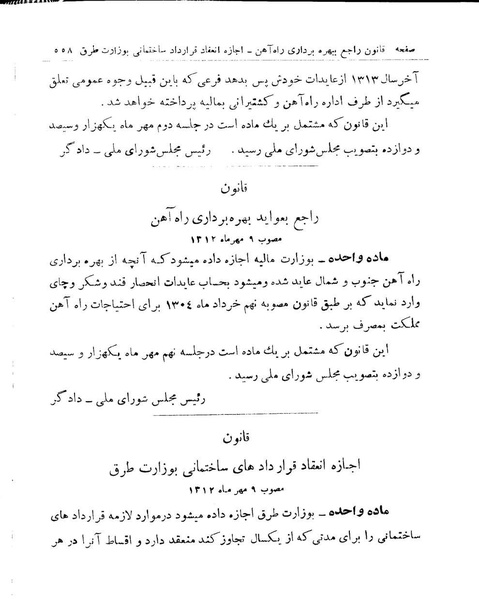 صفحه قانون راجع ببهره برداری راه‌آهن - اجازه انعقاد قرارداد ساختمانی بوزارت طرق ۵۵۸
آخر سال ۱۳۱۳ از عایدات خودش پس بدهد فرعی که باین قبیل وجوه عمومی تعلق
میگیرد از طرف اداره راه آهن و کشتیرانی بمالیه پرداخته خواهد شد.
این قانون که مشتمل بر یك ماده است در جلسه دوم مهر ماه یکهزار و سیصد
و دوازده بتصویب مجلس شورای ملی رسید. رئیس مجلس شورای ملی - دادگر
قانون
راجع بعواید بهره برداری راه آهن
مصوب ۹ مهر ماه ۱۳۱۲
ماده واحده - بوزارت مالیه اجازه داده میشود که آنچه از بهره برداری
راه آهن جنوب و شمال عاید شده ومیشود بحساب عایدات انحصار قند وشکر وچای
وارد نماید که بر طبق قانون مصوبه نهم خرداد ماه ۱۳۰۴ برای احتیاجات راه آهن
مملکت بمصرف برسد.
این قانون که مشتمل بر یك ماده است درجلسه نهم مهر ماه یکهزار و سیصد
و دوازده بتصویب مجلس شورای ملی رسید.
رئیس مجلس شورای ملی - دادگر
قانون
اجازه انعقاد قرارداد های ساختمانی بوزارت طرق
مصوب ۹ مهر ماه ۱۳۱۲
ماده واحده - بوزارت طرق اجازه داده میشود درموارد لازمه قرارداد های
ساختمانی را برای مدتی که از یکسال تجاوز کند منعقد دارد و اقساط آنرا در هر